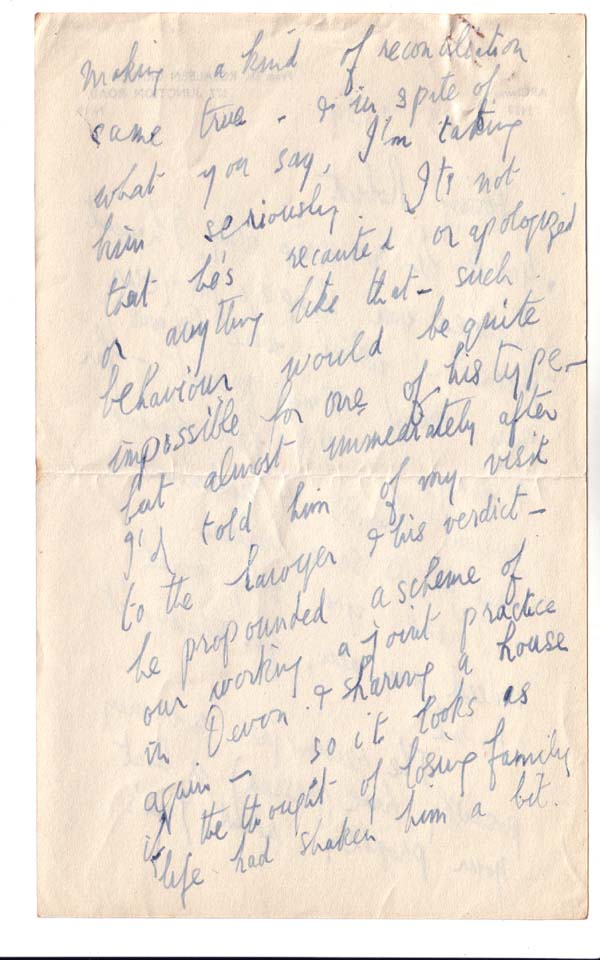 making a kind of reconciliation
came true - & in spite of
what you say, I'm taking
him seriously. It's not
that he's recanted or apologized
or anything like that - such
behaviour would be quite
impossible for one of his type -
but almost immediately after
I'd told him of my visit
to the lawyer & his verdict -
he propounded a scheme of
our working a joint practice
in Devon & sharing a house
again - so it looks as
if the thought of losing family
life had shaken him a bit.